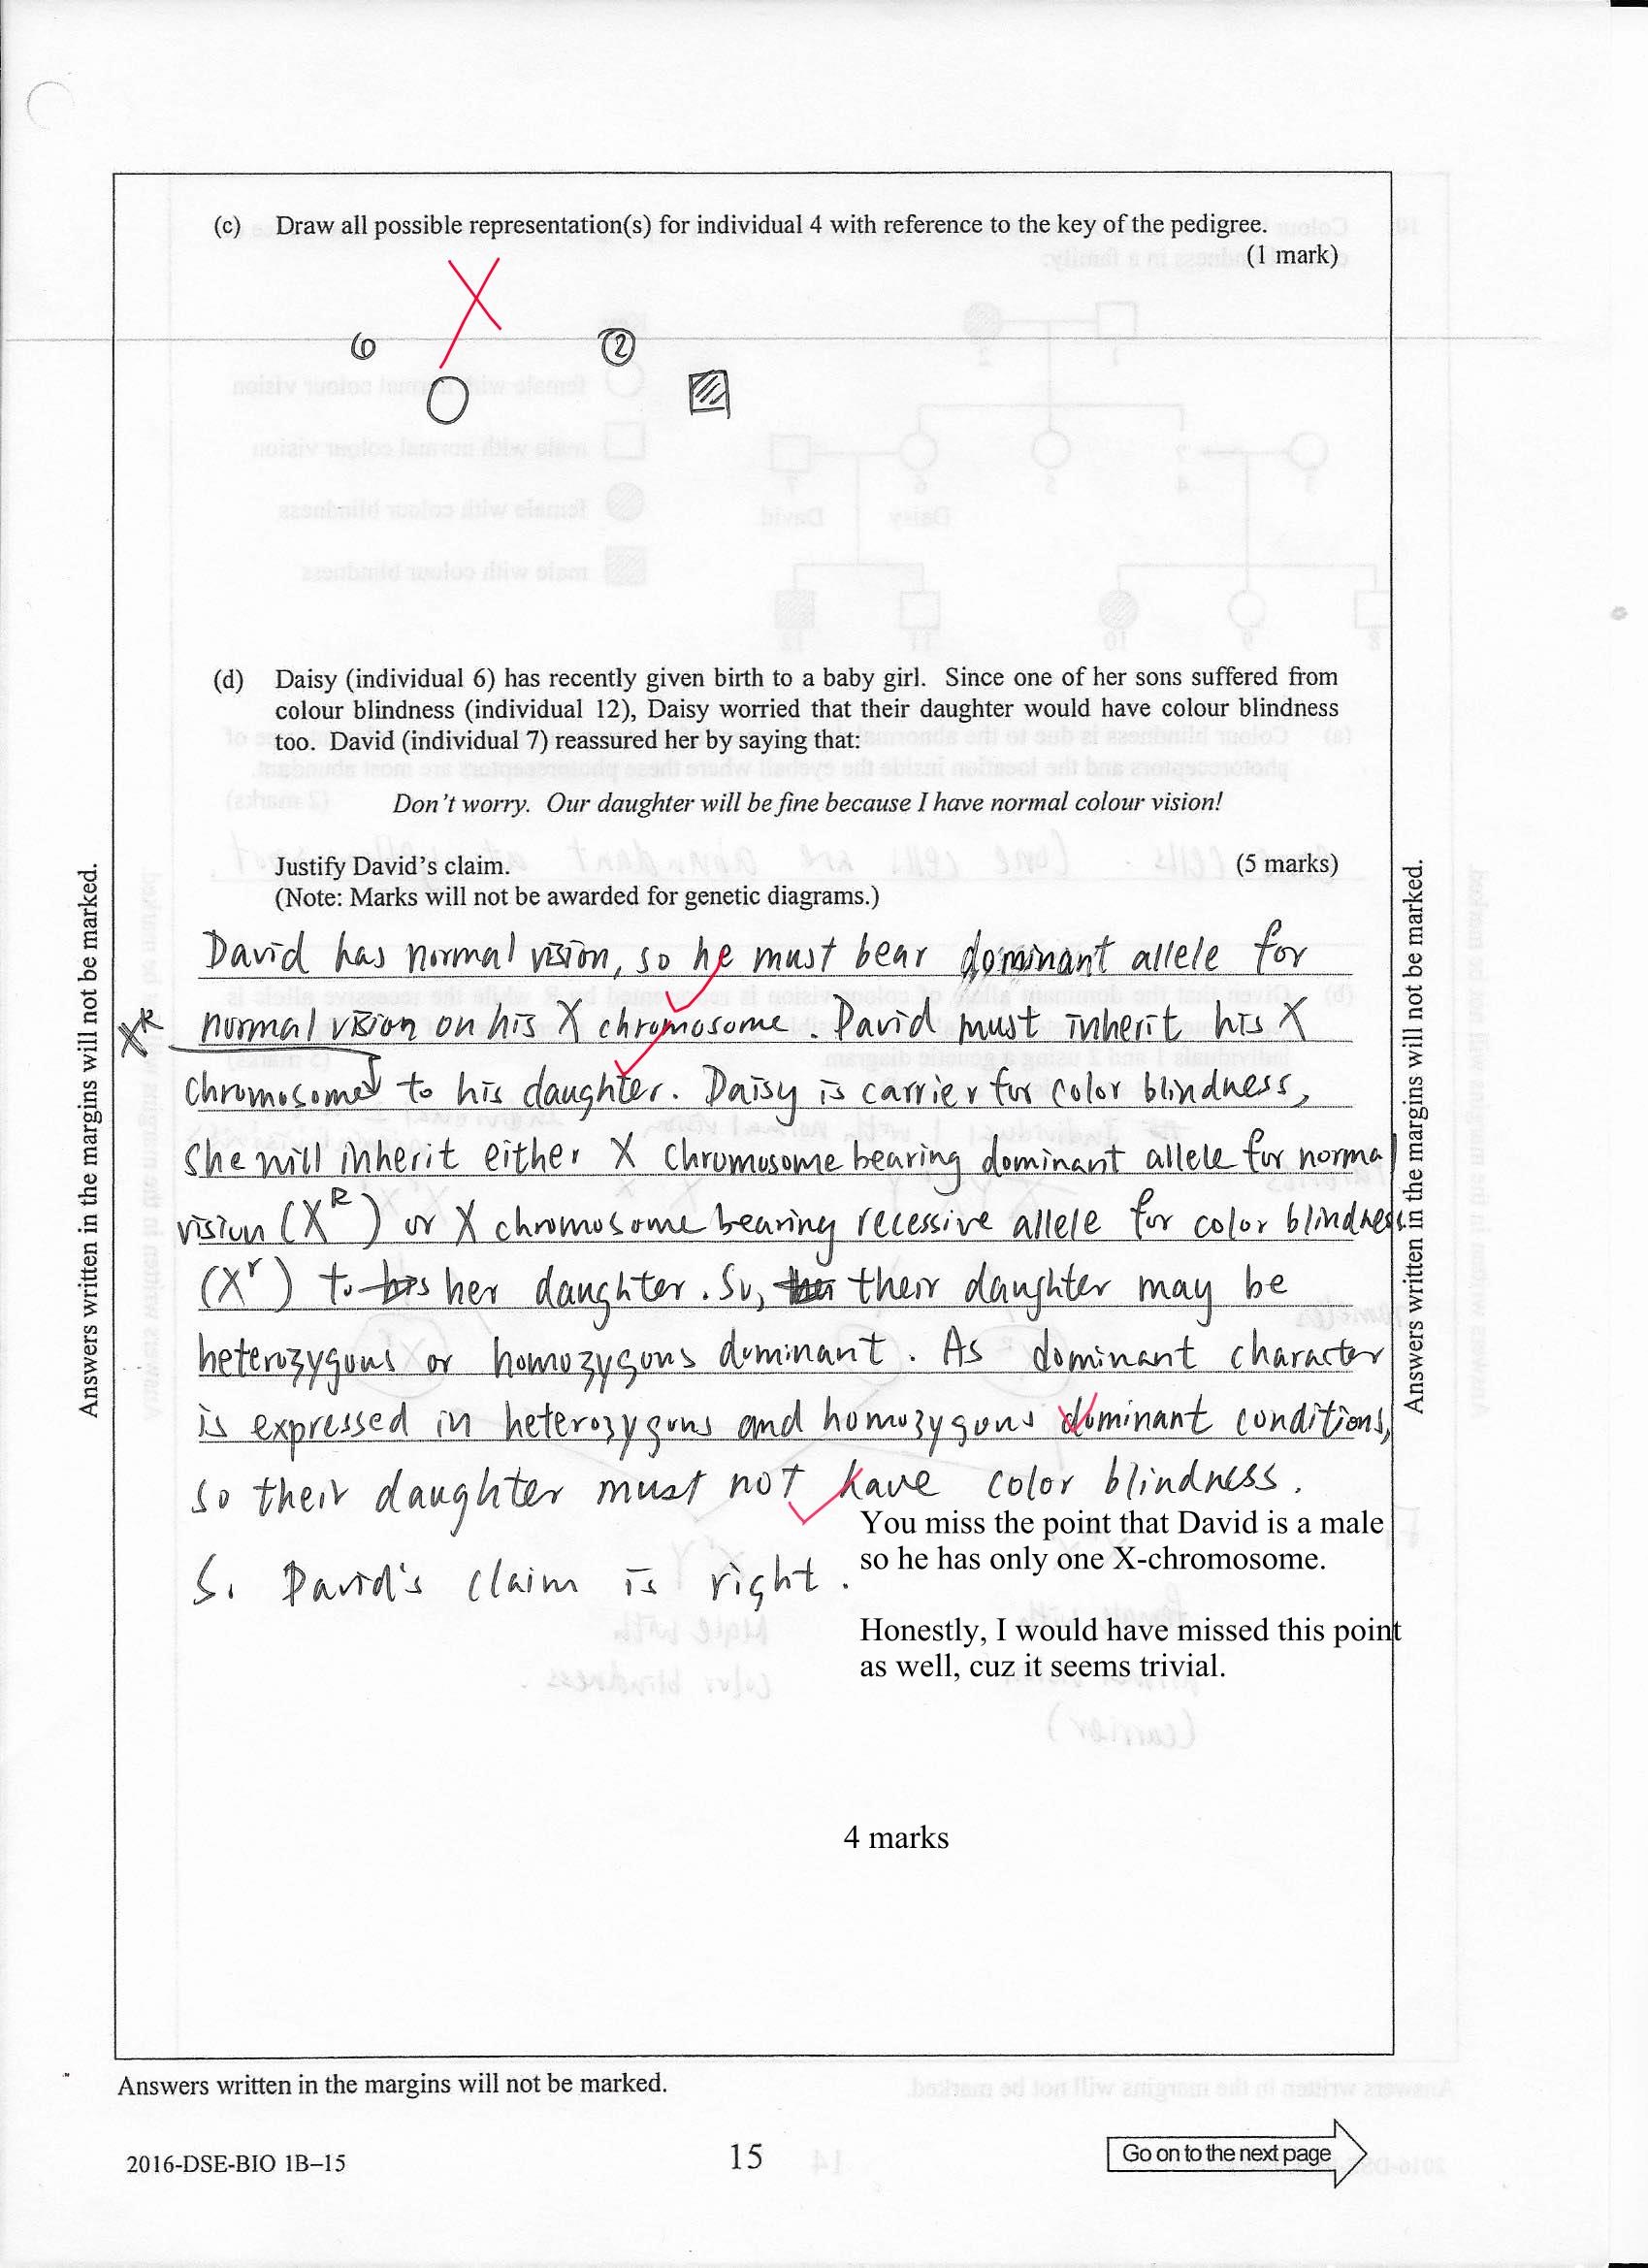 (c) Draw all possible representation(s) for individual 4 with reference to the key of the pedigree.
(1 mark)
②
(d) Daisy (individual 6) has recently given birth to a baby girl. Since one of her sons suffered from
colour blindness (individual 12), Daisy worried that their daughter would have colour blindness
too. David (individual 7) reassured her by saying that:
Don't worry. Our daughter will be fine because I have normal colour vision!
Justify David's claim. (5 marks)
(Note: Marks will not be awarded for genetic diagrams.)
David has normal vision, so he must bear dominant allele for
normal vision on his X chromosome. David must inherit his X
chromosome to his daughter. Daisy is carrier for color blindness,
she will inherit either X chromosome bearing dominant allele for normal
vision (X^R) or X chromosome bearing recessive allele for color blindness
(X^r) to her daughter. So, their daughter may be
heterozygous or homozygous dominant. As dominant character
is expressed in heterozygous and homozygous dominant conditions,
so their daughter must not have color blindness.
So David's claim is right.
You miss the point that David is a male
so he has only one X-chromosome.
Honestly, I would have missed this point
as well, cuz it seems trivial.
4 marks
Answers written in the margins will not be marked.
Answers written in the margins will not be marked.
Answers written in the margins will not be marked.
2016-DSE-BIO 1B–15
15
Go on to the next page